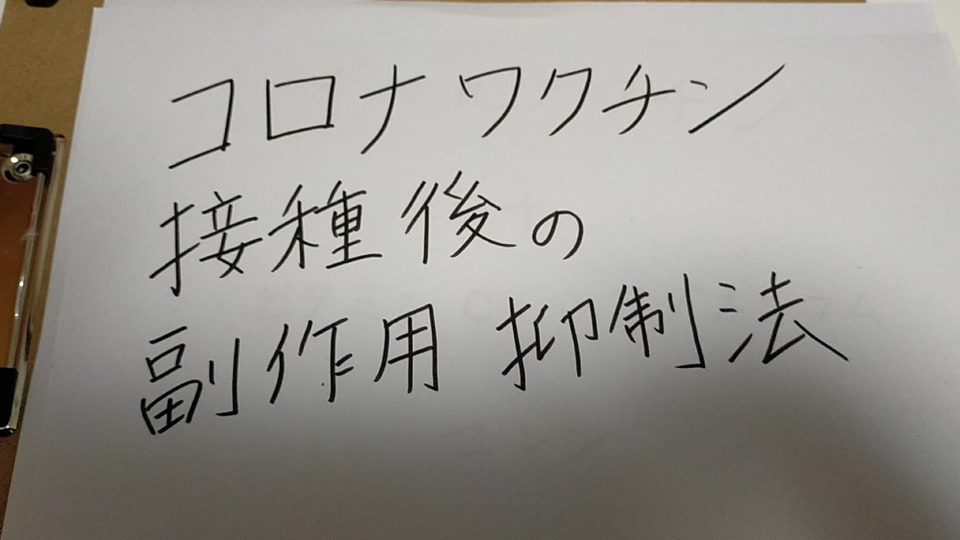 コロナワクチン
接種後の
副作用抑制法